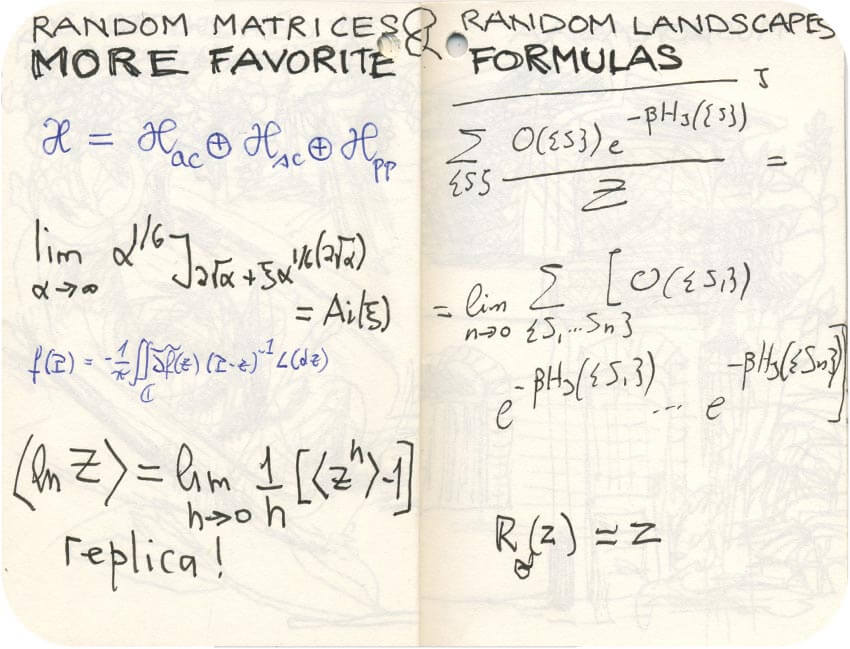 RANDOM MATRICES & RANDOM LANDSCAPES
MORE FAVORITE FORMULAS
ℋ = ℋ_ac ⊕ ℋ_sc ⊕ ℋ_pp
lim_{α→∞} α^{1/6} J_{2√α + ξα^{1/6}}(2√α)
= Ai(ξ)
f(I) = -1/π ∬_ℂ ∂̄f̃(z) (I-z)^{-1} L(dz)
⟨ln Z⟩ = lim_{n→0} 1/n [⟨Z^n⟩-1]
replica!
J
∑_{{S}} O({S}) e^{-βH_J({S})} / Z =
= lim_{n→0} ∑_{{S_1...S_n}} [O({S_1})
e^{-βH_J({S_1})} ... e^{-βH_J({S_n})}]
(z) ≈ z